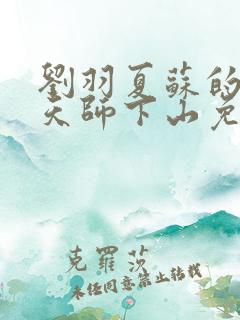 劉羽夏蘇的
天師下山免
克羅莎
未經同意禁止轉載